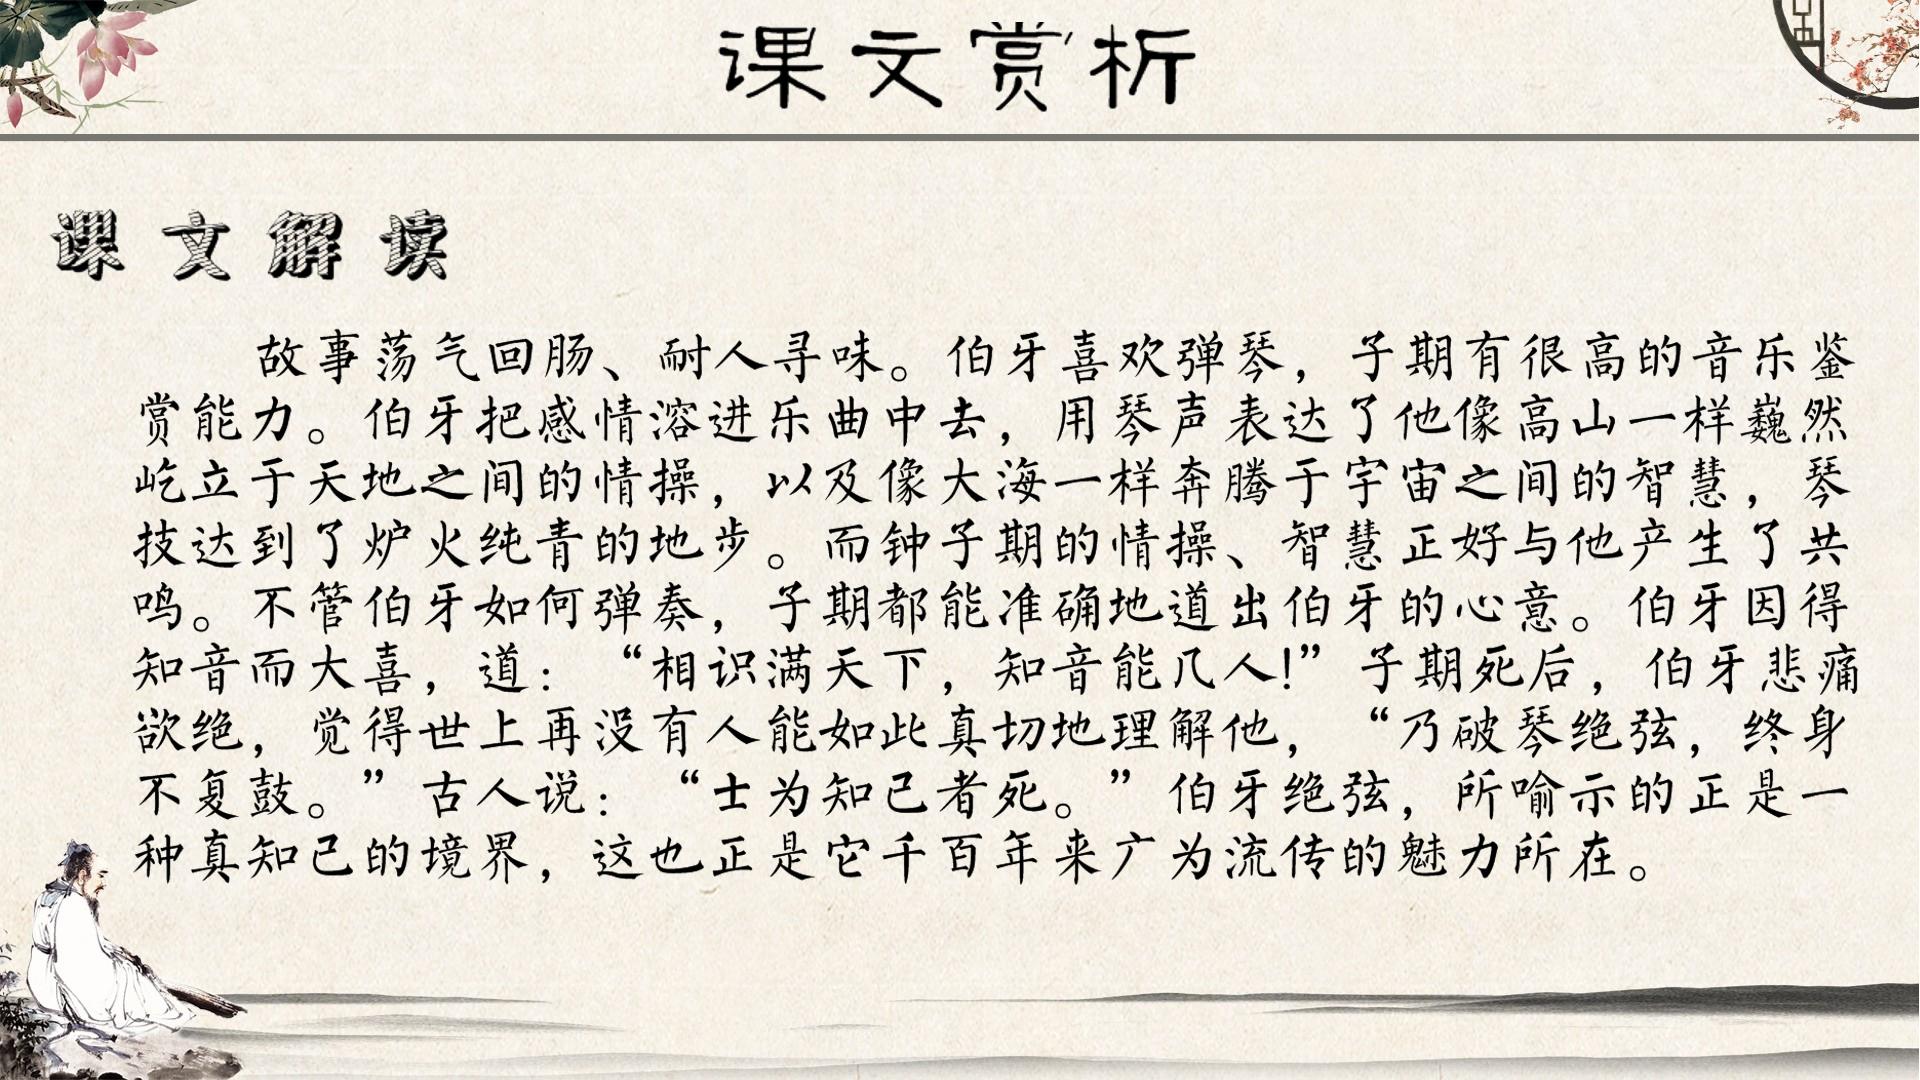 课文赏析
课文解读
故事荡气回肠、耐人寻味。伯牙喜欢弹琴，子期有很高的音乐鉴
赏能力。伯牙把感情溶进乐曲中去，用琴声表达了他像高山一样巍然
屹立于天地之间的情操，以及像大海一样奔腾于宇宙之间的智慧，琴
技达到了炉火纯青的地步。而钟子期的情操、智慧正好与他产生了共
鸣。不管伯牙如何弹奏，子期都能准确地道出伯牙的心意。伯牙因得
知音而大喜，道：“相识满天下，知音能几人!”子期死后，伯牙悲痛
欲绝，觉得世上再没有人能如此真切地理解他，“乃破琴绝弦，终身
不复鼓。”古人说：“士为知己者死。”伯牙绝弦，所喻示的正是一
种真知己的境界，这也正是它千百年来广为流传的魅力所在。